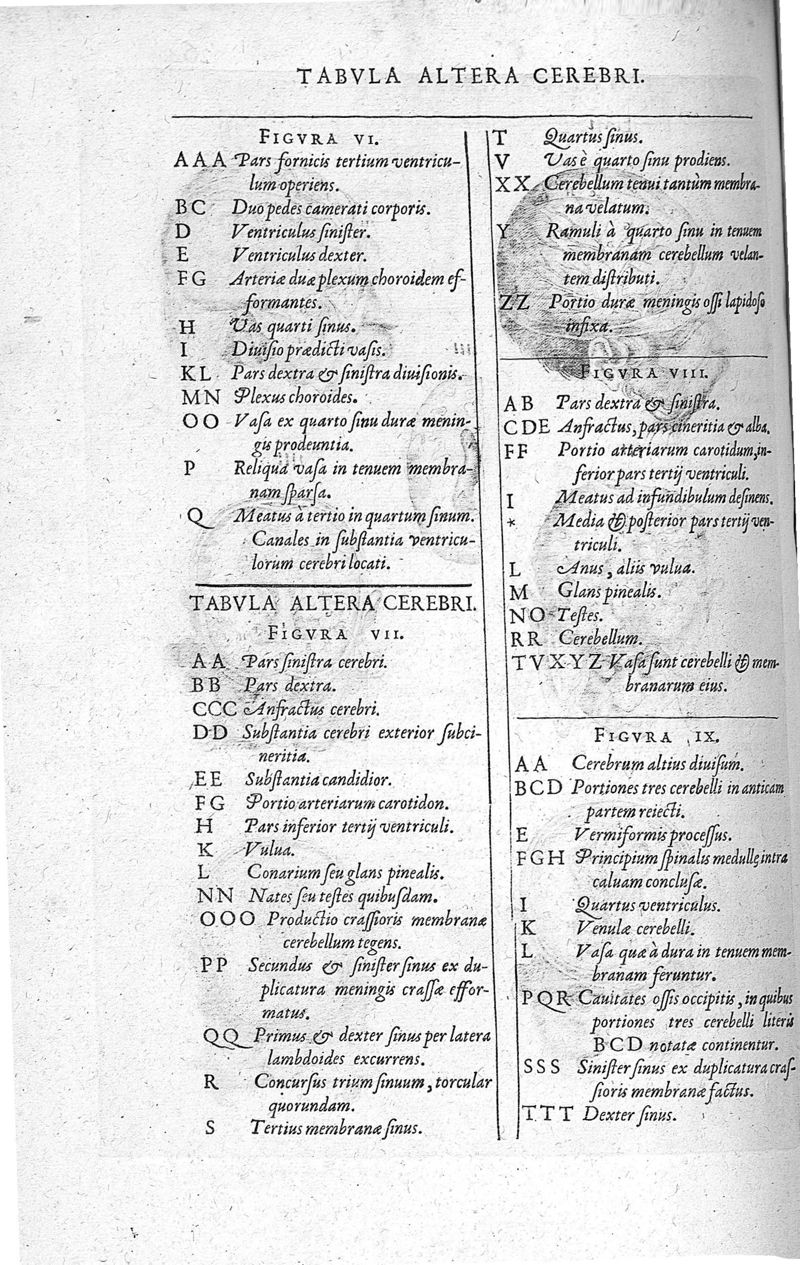 TABVLA ALTERA CEREBRI.
FIGVRA VI.
AAA Pars fornicis tertium ventricu-
lum operiens.
BC Duo pedes camerati corporis.
D Ventriculus sinister.
E Ventriculus dexter.
FG Arteriæ duæ plexum choroidem ef-
formantes.
H Vas quarti sinus.
I Diuisio prædicti vasis.
KL Pars dextra & sinistra diuisionis.
MN Plexus choroides.
OO Vasa ex quarto sinu duræ menin-
gis prodeuntia.
P Reliqua vasa in tenuem membra-
nam sparsa.
Q Meatus à tertio in quartum sinum.
Canales in substantia ventricu-
lorum cerebri locati.
TABVLA ALTERA CEREBRI.
FIGVRA VII.
AA Pars sinistra cerebri.
BB Pars dextra.
CCC Anfractus cerebri.
DD Substantia cerebri exterior subci-
neritia.
EE Substantia candidior.
FG Portio arteriarum carotidon.
H Pars inferior tertij ventriculi.
K Vulua.
L Conarium seu glans pinealis.
NN Nates seu testes quibusdam.
OOO Productio crassioris membranæ
cerebellum tegens.
PP Secundus & sinister sinus ex du-
plicatura meningis crassæ effor-
matus.
QQ Primus & dexter sinus per latera
lambdoides excurrens.
R Concursus trium sinuum, torcular
quorundam.
S Tertius membranæ sinus.
T Quartus sinus.
V Vas è quarto sinu prodiens.
XX Cerebellum tenui tantùm membra-
na velatum.
Y Ramuli à quarto sinu in tenuem
membranam cerebellum velan-
tem distributi.
ZZ Portio duræ meningis ossi lapidoso
infixa.
FIGVRA VIII.
AB Pars dextra & sinistra.
CDE Anfractus, pars cineritia & alba.
FF Portio arteriarum carotidum, in-
ferior pars tertij ventriculi.
I Meatus ad infundibulum desinens.
* Media & posterior pars tertij ven-
triculi.
L Anus, aliis vulua.
M Glans pinealis.
NO Testes.
RR Cerebellum.
TVXYZ Vasa sunt cerebelli & mem-
branarum eius.
FIGVRA IX.
AA Cerebrum altius diuisum.
BCD Portiones tres cerebelli in anticam
partem reiecti.
E Vermiformis processus.
FGH Principium spinalis medullę intra
caluam conclusæ.
I Quartus ventriculus.
K Venulæ cerebelli.
L Vasa quæ à dura in tenuem mem-
branam feruntur.
PQR Cauitates ossis occipitis, in quibus
portiones tres cerebelli literis
BCD notatæ continentur.
SSS Sinister sinus ex duplicatura cras-
sioris membranæ factus.
TTT Dexter sinus.